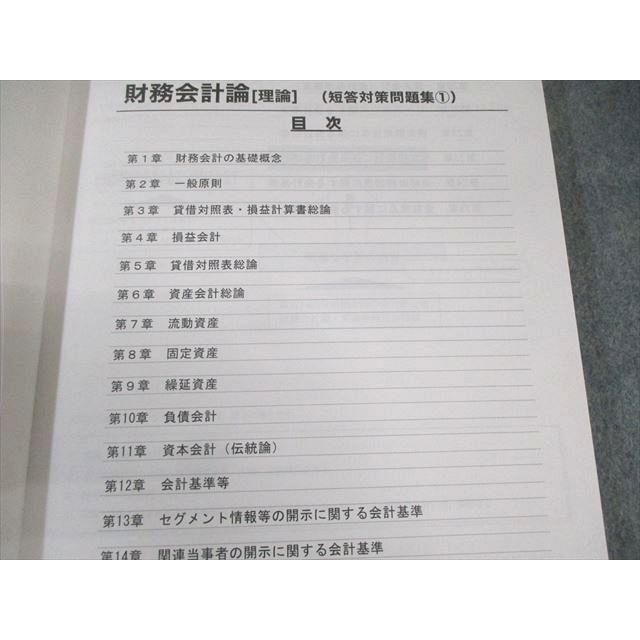 財務会計論[理論] （短答対策問題集①）
目 次
第１章 財務会計の基礎概念
第２章 一般原則
第３章 貸借対照表・損益計算書総論
第４章 損益会計
第５章 貸借対照表総論
第６章 資産会計総論
第７章 流動資産
第８章 固定資産
第９章 繰延資産
第10章 負債会計
第11章 資本会計（伝統論）
第12章 会計基準等
第13章 セグメント情報等の開示に関する会計基準
第14章 関連当事者の開示に関する会計基準